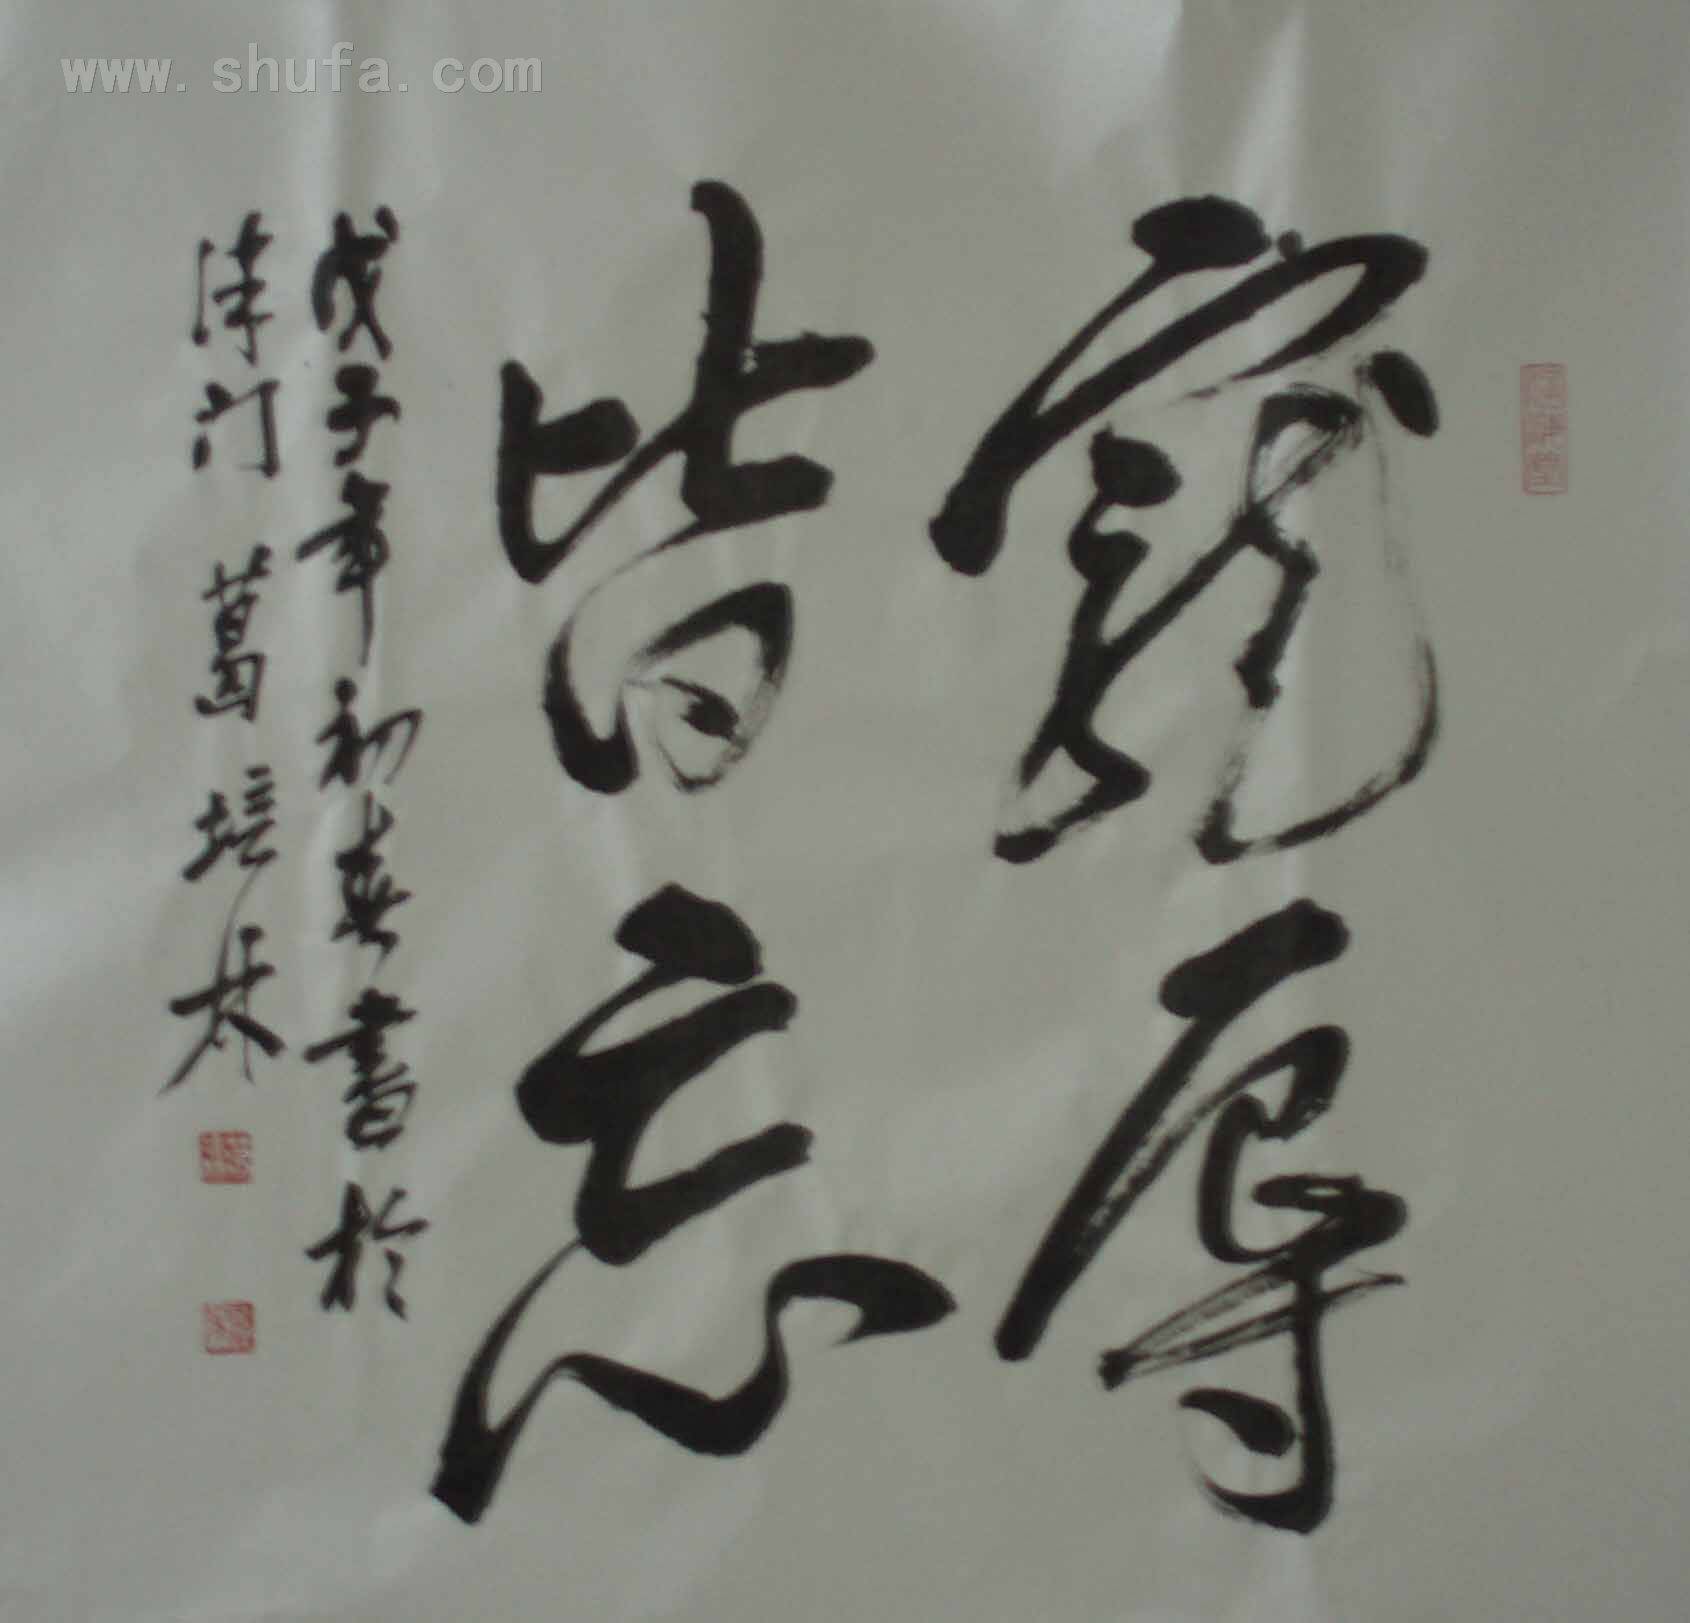 www.shufa.com
寵辱
皆忘
戊子年初春書於
津门 葛培林